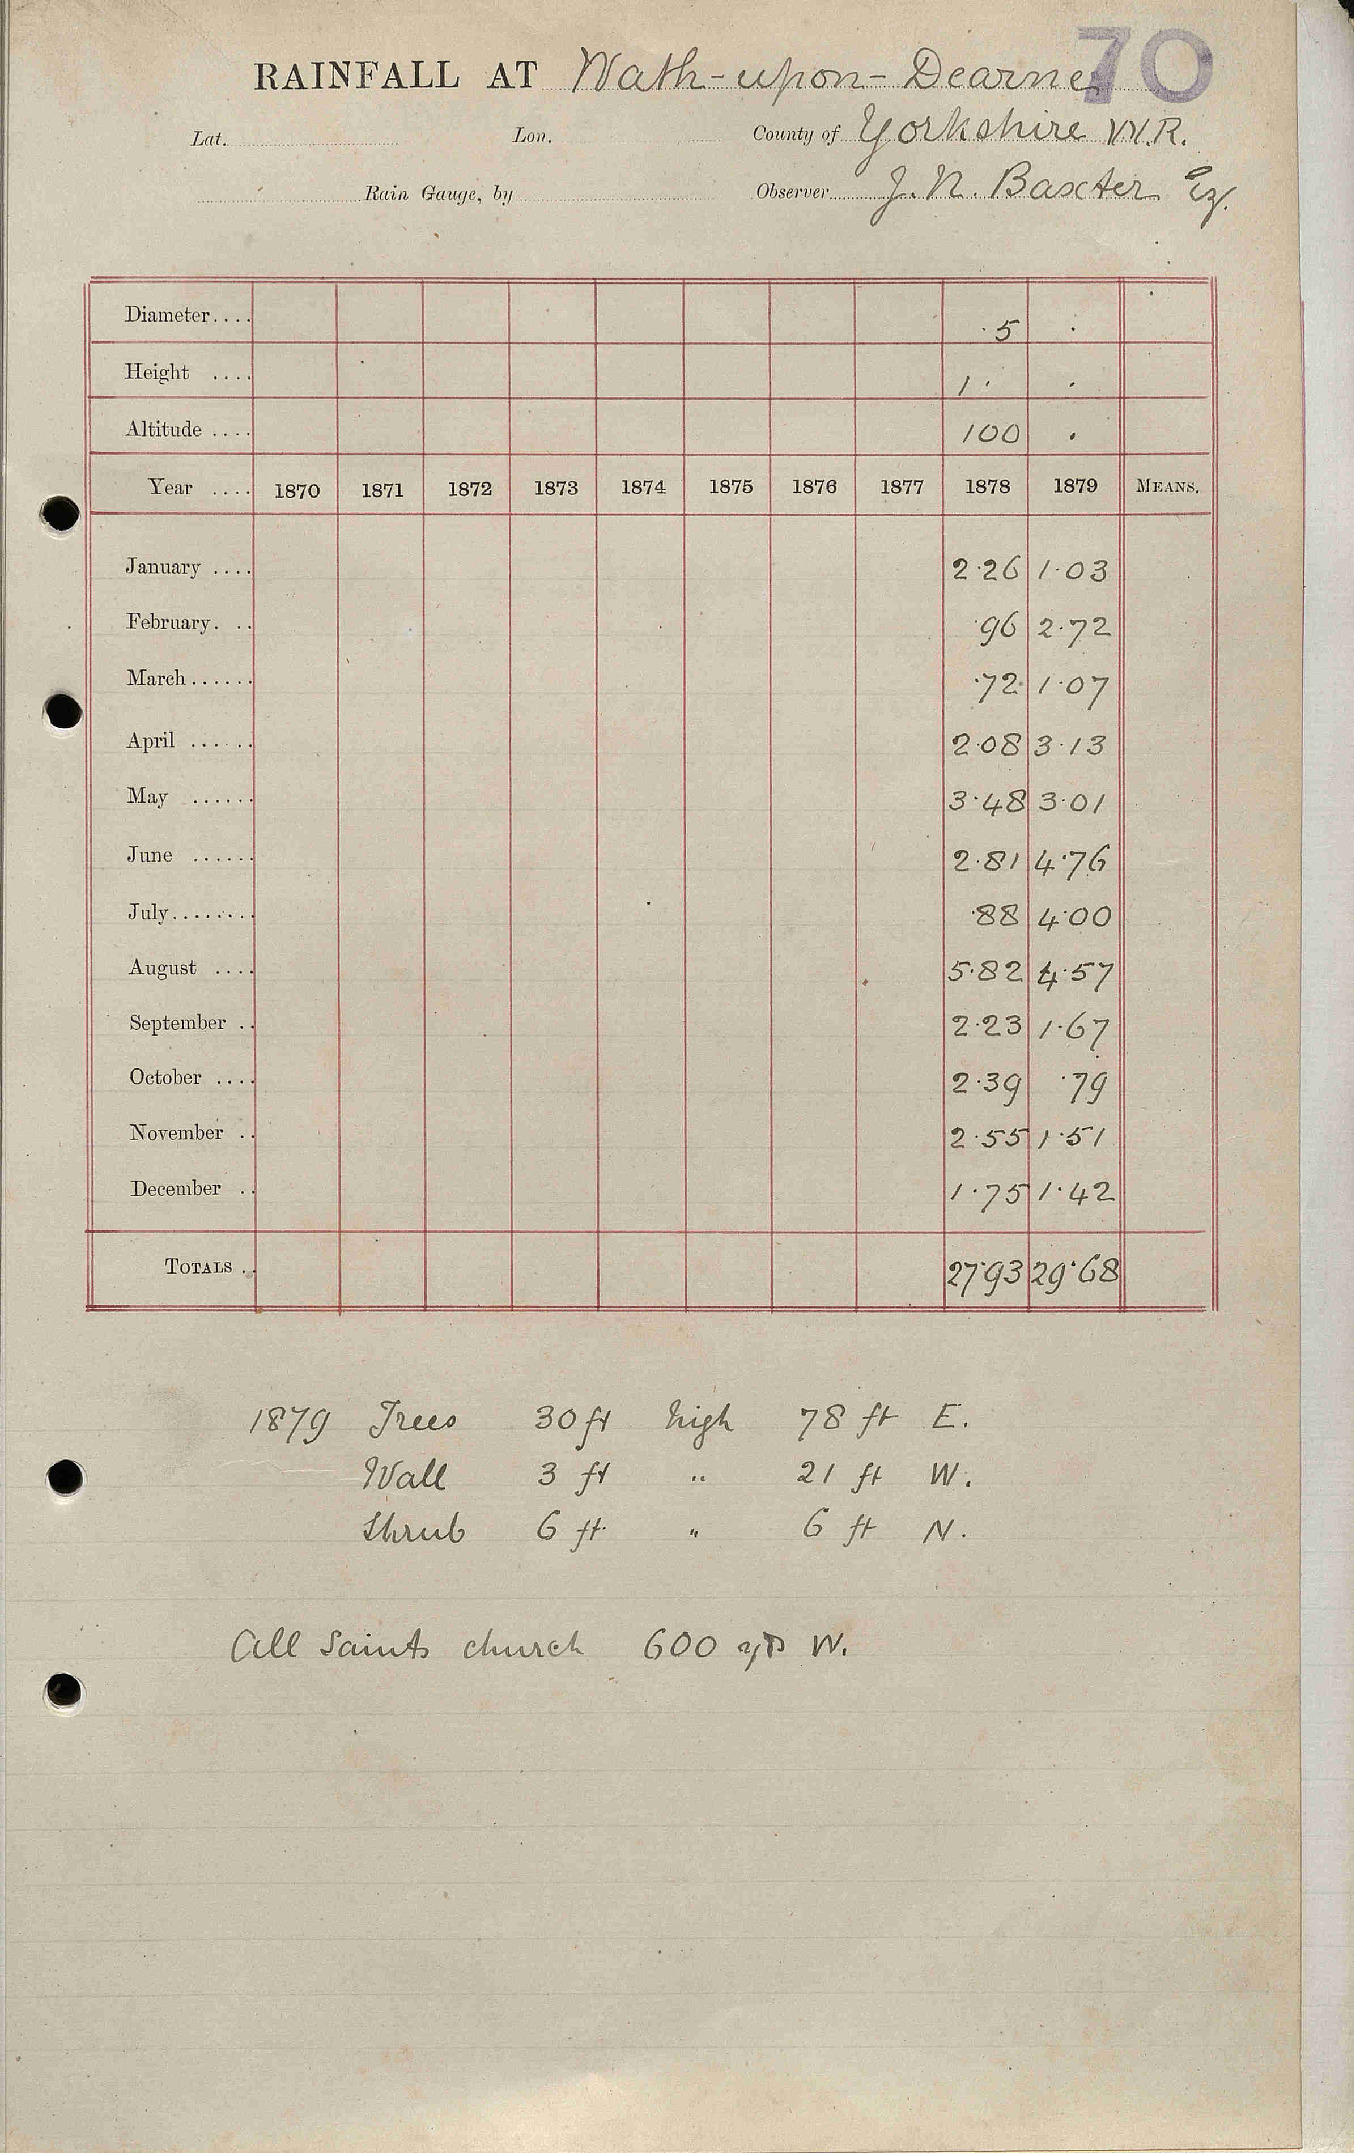 70
RAINFALL AT Wath-upon-Dearne
Lat. Lon. County of Yorkshire W.R.
Rain Gauge, by Observer J. N. Baxter Esq.
Diameter.... 5 .
Height .... 1. .
Altitude .... 100 .
Year .... 1870 1871 1872 1873 1874 1875 1876 1877 1878 1879 MEANS.
January .... 2.26 1.03
February. .. .96 2.72
March...... .72 1.07
April ...... 2.08 3.13
May ...... 3.48 3.01
June ...... 2.81 4.76
July........ .88 4.00
August .... 5.82 4.57
September .. 2.23 1.67
October .... 2.39 .79
November .. 2.55 1.51
December .. 1.75 1.42
TOTALS .. 27.93 29.68
1879 Trees 30 ft high 78 ft E.
Wall 3 ft " 21 ft W.
Shrub 6 ft " 6 ft N.
All Saints church 600 yds W.